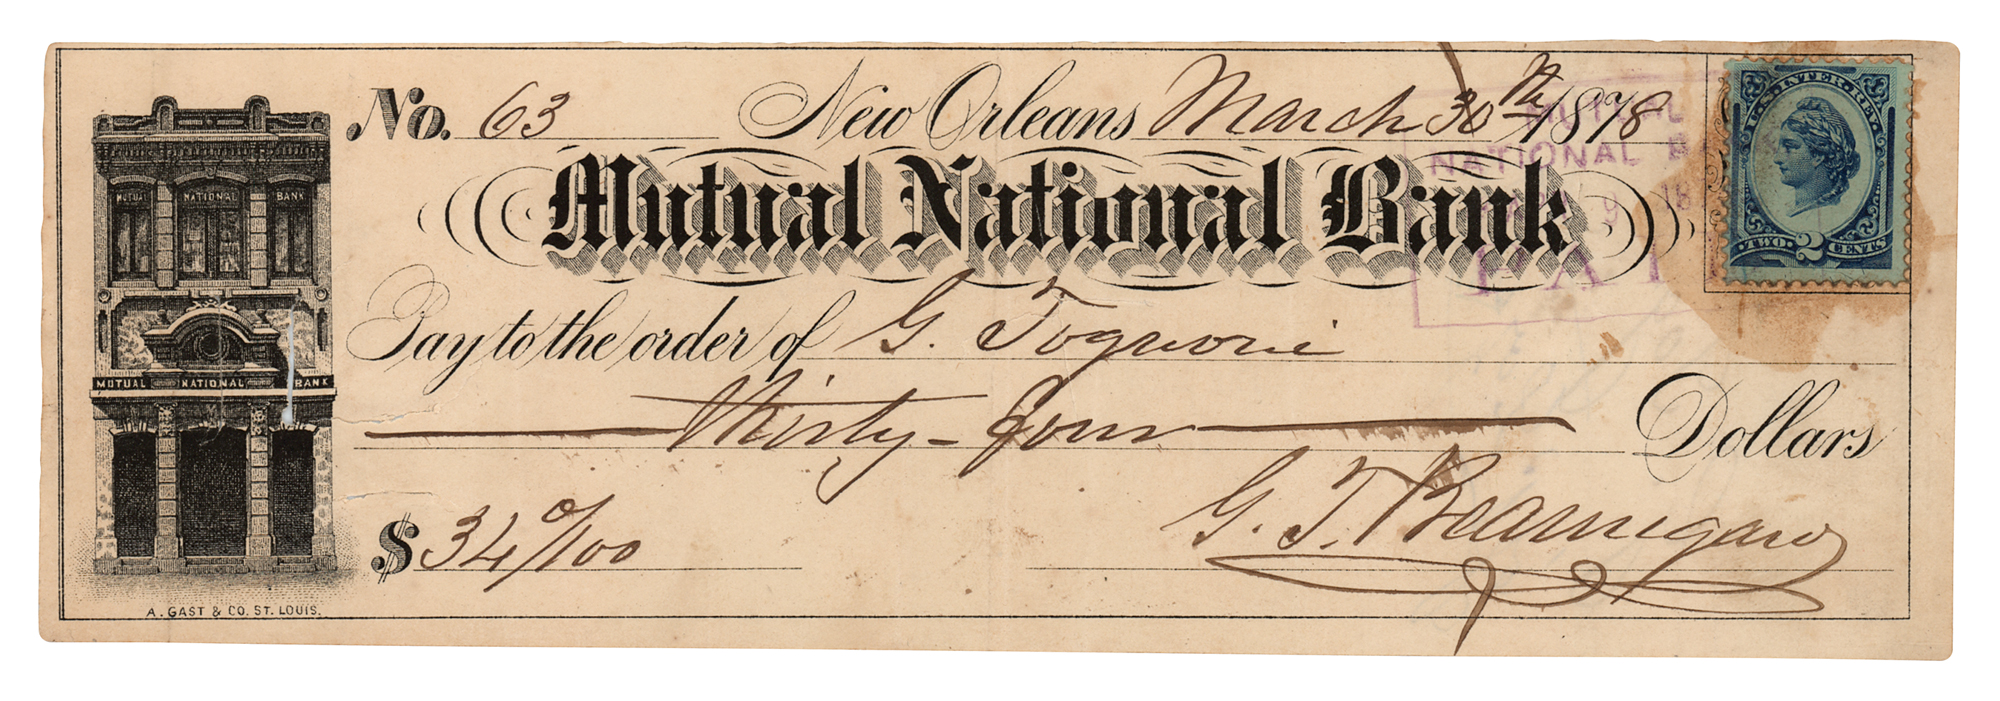 No. 63 New Orleans March 30th 1878
MUTUAL
NATIONAL
MUTUAL NATIONAL BANK
Mutual National Bank
U.S. INTER. REV.
TWO 2 CENTS
Pay to the order of G. Tognoni
MUTUAL NATIONAL BANK
Thirty-four Dollars
$34 0/100
G. T. Beauregard
A. GAST & CO. ST. LOUIS.